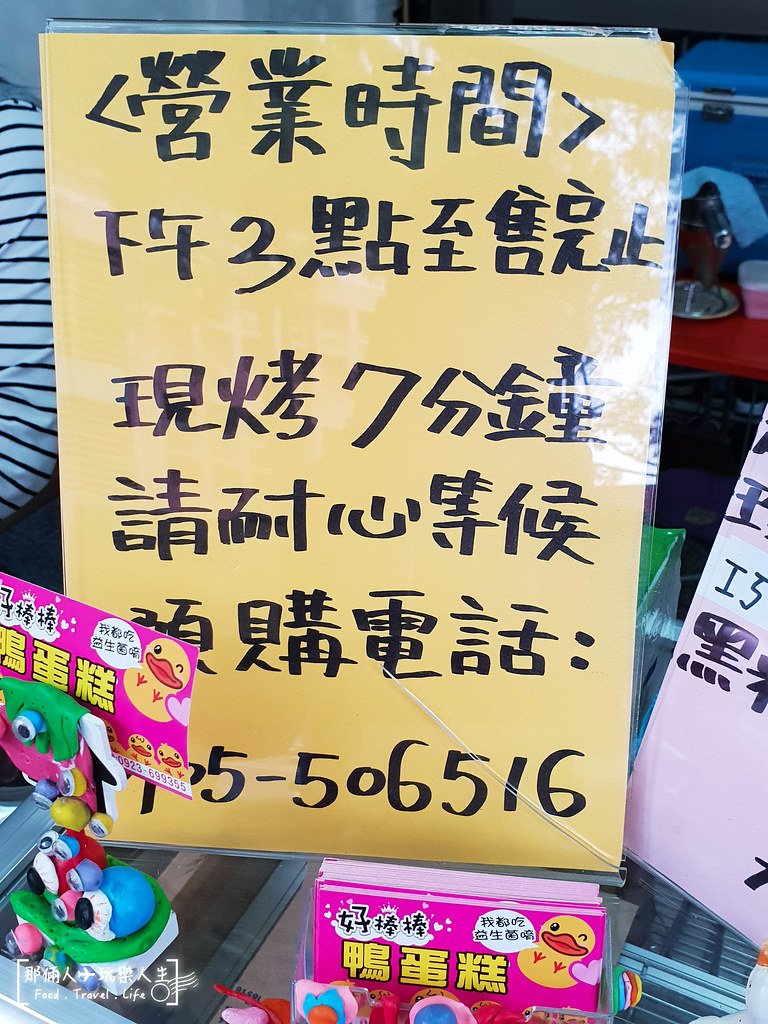 <營業時間>
下午3點至售完止
現烤7分鐘
請耐心等候
預購電話:
05-506516
好棒棒
鴨蛋糕
我都吃
益生菌唷
0923-699355
好棒棒
鴨蛋糕
我都吃
益生菌唷
現
巧
黑
那倆人玩樂人生
Food . Travel . Life